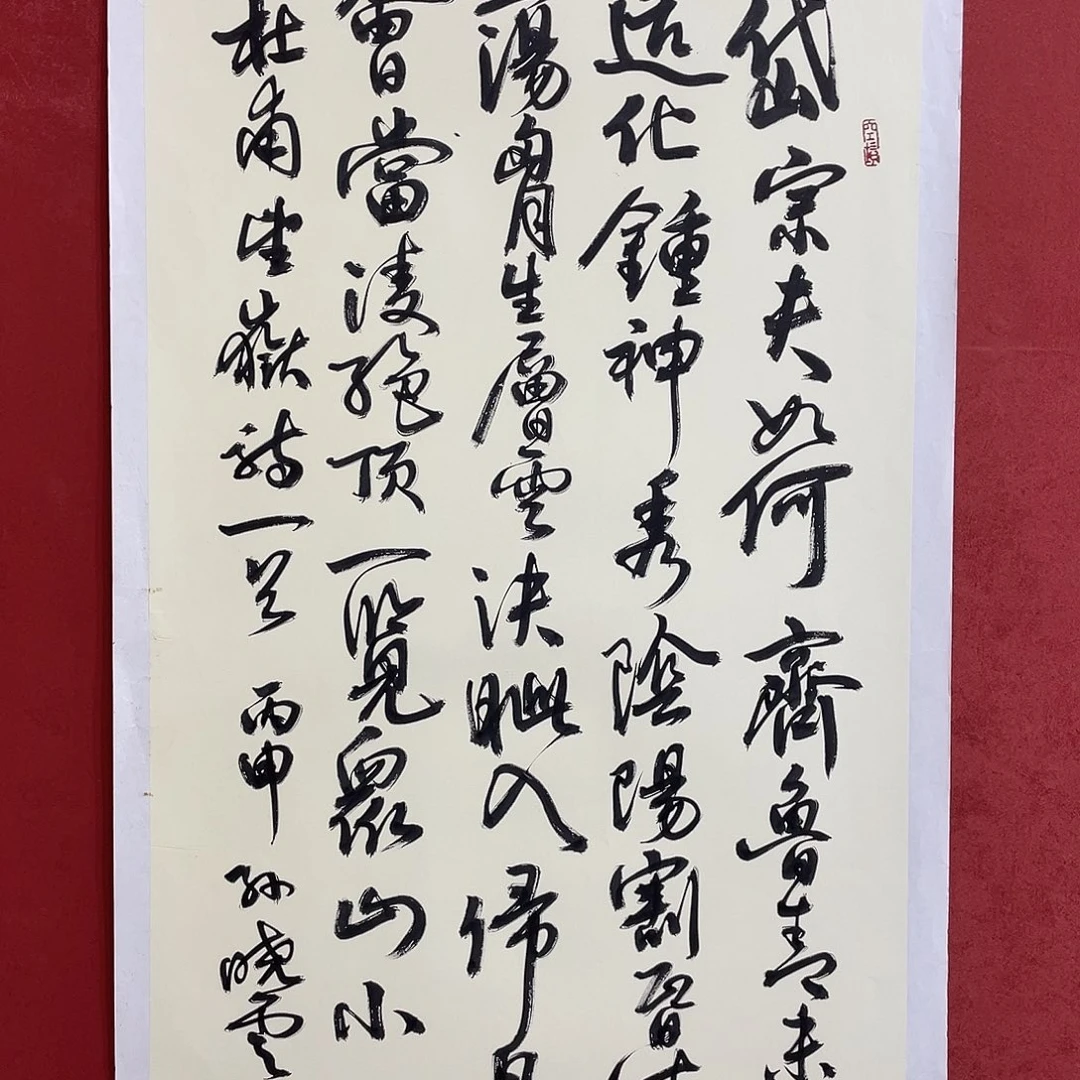 岱宗夫如何齊魯青未
造化鍾神秀陰陽割昏
蕩胷生層雲決眦入歸
會當凌絶頂一覽眾山小
杜甫望嶽詩一首 丙申 孫曉雲